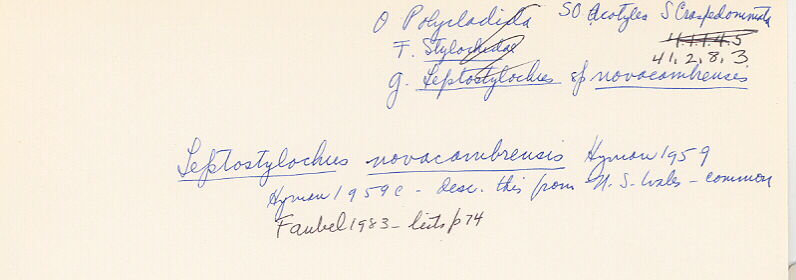 O Polycladida SO Acotylea S Craspedommata
4.1.1.4.5
F. Stylochidae 41.2.8.3
g. Leptostylochus sp novacambrensis
Leptostylochus novacambrensis Hyman 1959
Hyman 1959c - desc. this from N. S. Wales - common
Faubel 1983 - lists p74